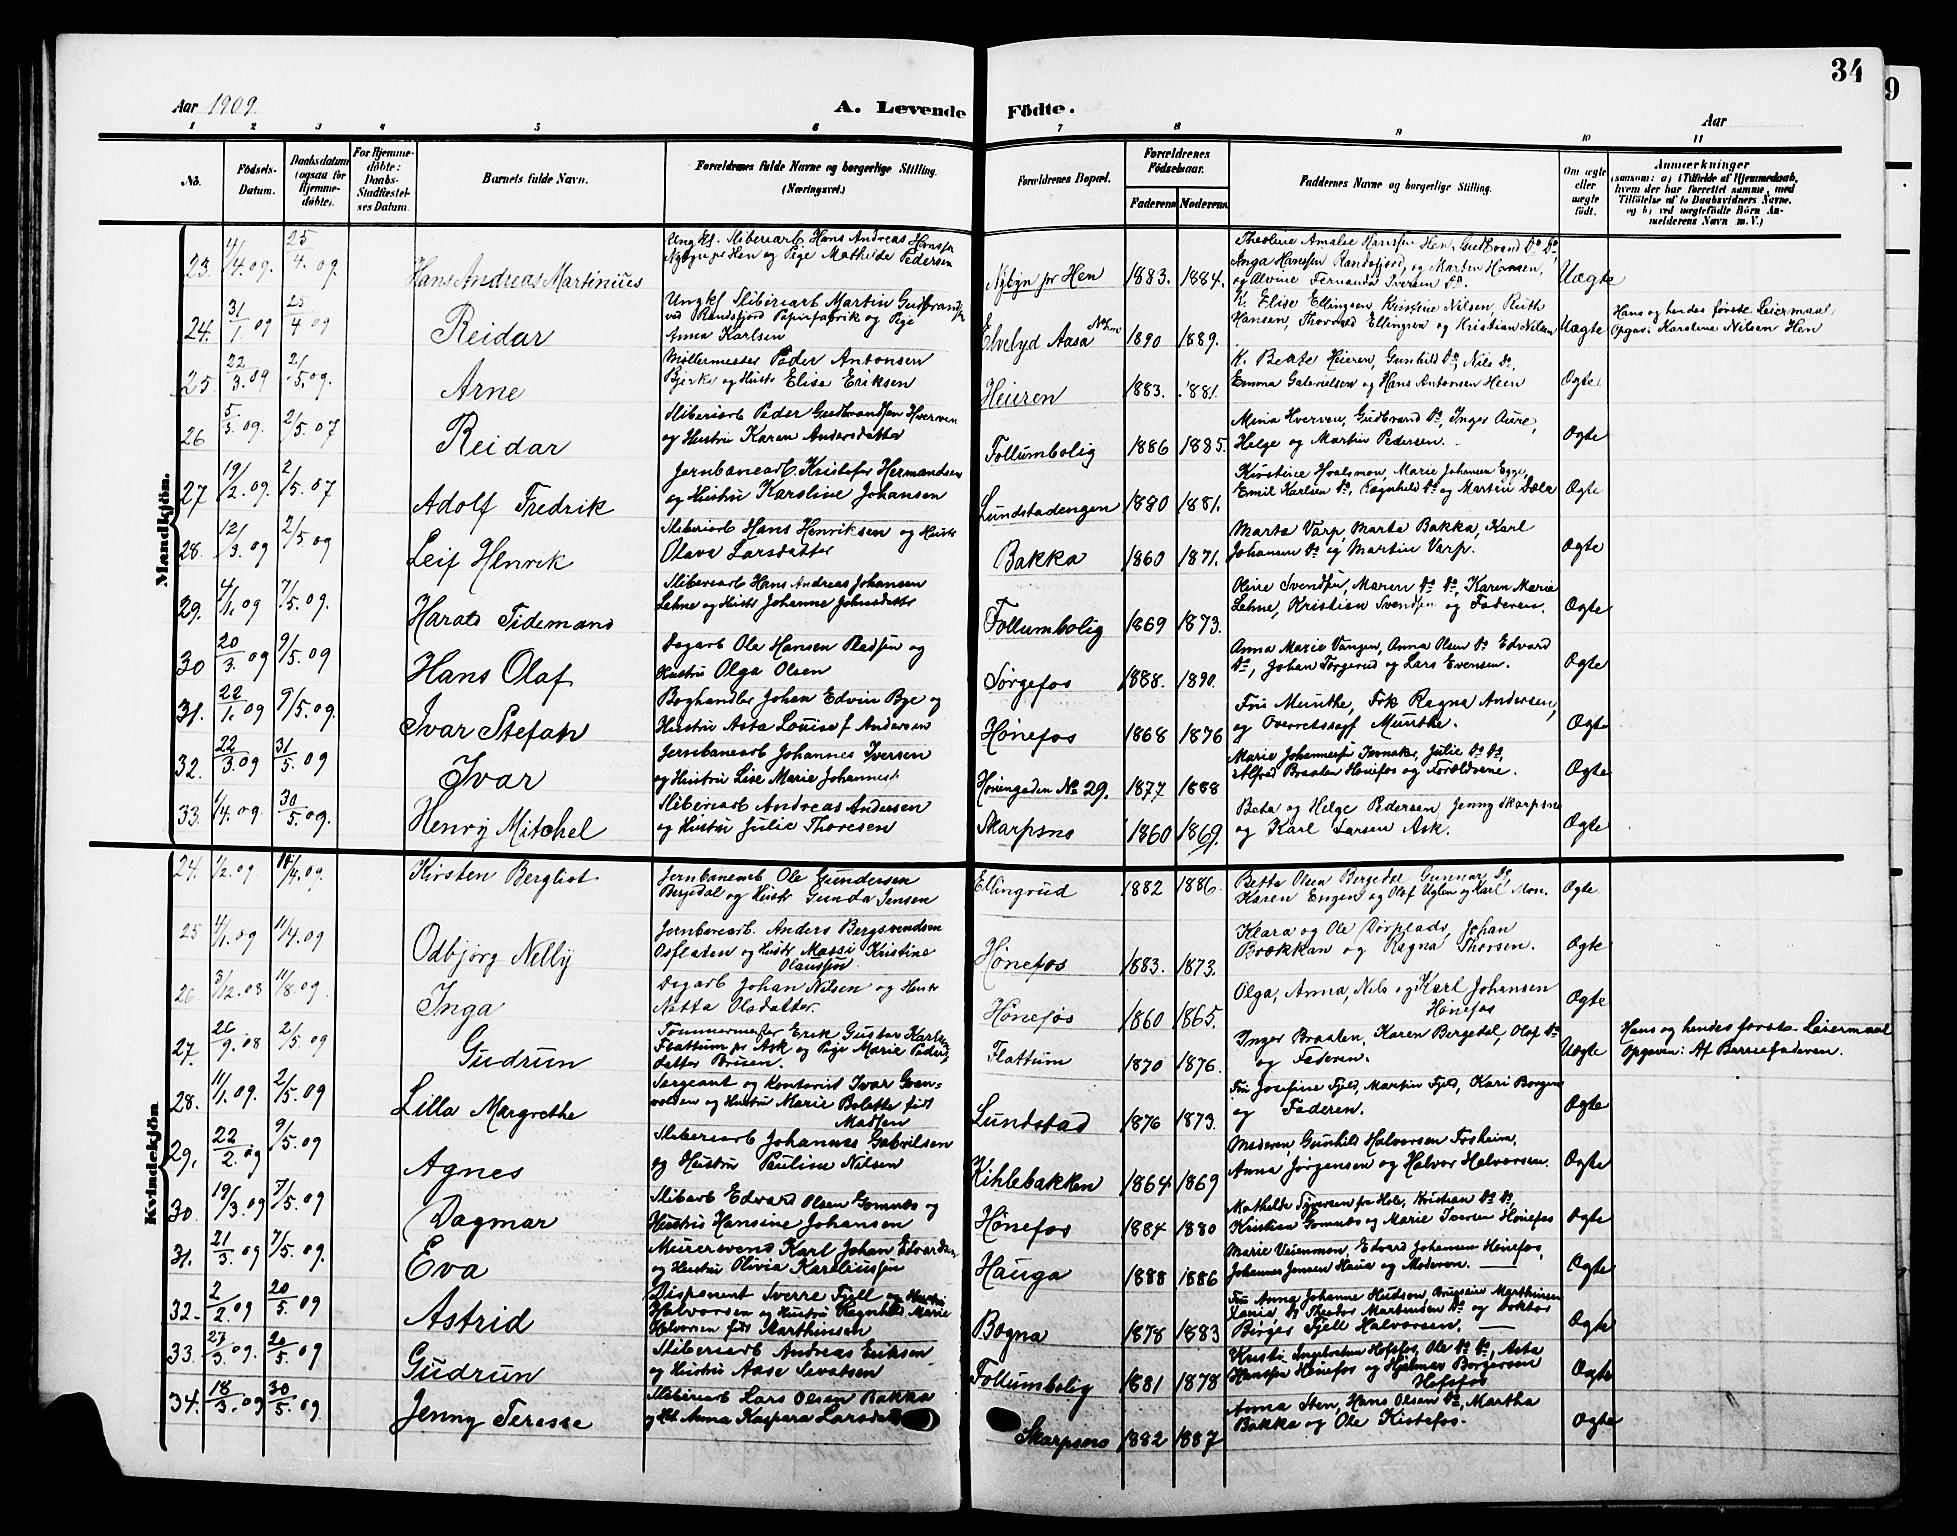 34
9
Aar 1909. A. Levende Födte. Aar
1 2 3 4 5 6 7 8 9 10 11
No. Födsels-Datum. Daabsdatum (ogsaa for Hjemme-döbte). For Hjemme-döbte: Daabs-Stadfæstel-ses Datum. Barnets fulde Navn. Forældrenes fulde Navne og borgerlige Stilling. (Næringsvei.) Forældrenes Bopæl. Forældrenes Födselsaar. Faderens Moderens Faddernes Navne og borgerlige Stilling. Om ægte eller uægte födt. Anmærkninger
(saasom: a) i Tilfælde af Hjemmedaab, hvem der har forrettet samme, med Tilföielse af to Daabsvidners Navne, og b) ved uægtefödte Börn An-melderens Navn m. V.)
Mandkjön.
23. 4/4.09. 25/4.09. Hans Andreas Martinius Ungkf. Sliberiarb Hans Andreas Hansen
Nybyn pr Hen og Pige Mathilde Pedersen Nybyn pr Hen 1883. 1884. Theoline Amalie Hanssen Hen, Gudbrand Do Do,
Anga Hanssen Randsfjord, og Marten Hansen,
og Alvine Fernanda Iversen Do. Uægte
24. 31/1 09 25/4 09 Reidar Ungkf Sliberiarb Martin Gudbrands
ved Randsfjord Papirfabrik og Pige
Anna Karlsen Elvelyd Aasa 1890 1889. K. Elise Ellingsen, Kristine Nilsen, Ruth
Hansen, Thorvald Ellingsen og Kristian Nilsen Uægte Hans og hendes første Leiermaal
Opgav: Karoline Nilsen Hen
25. 22/3.09 2/5.09. Arne Møllermester Peder Antonsen
Bjerke og Hustr Elise Eriksen Heieren 1883. 1881. K. Beate Heieren, Gunhild Do, Nils Do,
Emma Gabrielsen og Hans Antonsen Heen Ægte
26 5/3.09. 2/5.07 Reidar Sliberiarb Peder Gudbrandsen Hverven
og Hustru Karen Andersdatter Follumbolig 1886 1885. Mina Hverven, Gudbrand Do Inger Aure,
Helge og Martin Pedersen. Ægte
27 19/2.09. 2/5.07 Adolf Fredrik Jernbanearb. Kristofer Hermandsen
og Hustru Karoline Johansen Lundstadengen 1880 1881. Kirstine Hvalsmon, Marie Johansen Egge,
Emil Karlsen Do, Ragnhild Do og Martin Dæle Ægte
28. 12/3.09 2/5.09 Leif Henrik Sliberiarb Hans Henriksen og Hustr
Olava Larsdatter Bakka 1860 1871. Marta Varp, Marta Bakka, Karl
Johansen Do og Martin Varp. Ægte
29. 4/1.09 7/5.09. Harald Tidemand Sliberiarb Hans Andreas Johansen
Lehne og Hustr Johanne Johnsdatter Follumbolig 1869 1873. Oline Svendsen, Maren Do Do, Karen Marie
Lehne, Kristian Svendsen og Faderen. Ægte
30 20/3.09 9/5.09 Hans Olaf Dagarb Ole Hansen Pladsen og
Hustru Olga Olsen Sørgefos 1888. 1890. Anna Marie Vangen, Anna Olsen Do Edvard
Do, Johan Torgerud og Lars Evensen. Ægte
31. 22/1.09 9/5.09. Ivar Stefan Boghandler Johan Edvin Bye og
Hustru Asta Louise f Andersen Hønefos 1868 1876 Fru Munthe, Frk Ragna Andersen,
og Overretssagf Munthe. Ægte
32. 22/3.09 31/5.09 Ivar Jernbanearb Johannes Iversen
og Hustru Lise Marie Johannesd Høiengaden No 29. 1877 1888 Marie Johannesen , Julie Do Do,
Alfred Braaten Hønefos og Forældrene. Ægte
33. 1/4.09. 30/5.09. Henry Mitchel Sliberiarb Andreas Andersen
og Hustru Julie Thoresen Skarpsno 1860 1869. Beta og Helge Pedersen Jenny Skarpsno
og Karl Larsen Ask. Ægte
Kvindekjön
24. 1/2.09. 11/4.09. Kirsten Bergliot Jernbanearb Ole Gundersen
Bergdal og Hustr Gunda Jensen Ellingrud 1882 1886. Betta Olsen Bergedal Gunnar Do,
Karen Engen og Olaf Uglen og Karl Mon. Ægte
25 4/1.09 11/4.09 Odbjørg Nelly Jernbanearb. Anders Bergsvendsen
Osfladen og Hustr Massi Kristine
Olaussen Hønefos 1883. 1873. Klara og Ole Dørplads, Johan
Brækkan og Ragna Thorsen. Ægte
26. 31/12.08 11/8.09. Inga Dagarb Johan Nilsen og Hustr
Netta Olsdatter. Hønefos 1860 1865. Olga, Anna, Nils og Karl Johansen
Hønefos Ægte
27. 26/9.08 2/5.09 Gudrun Tømmermester Erik Gustav Karlsen
Flattum pr Ask og Pige Marie Peders
datter Brusen. Flattum 1870 1876. Inger Braaten, Karen Bergedal, Olaf Do
og Faderen. Uægte Hans og hendes første Leiermaal
Opgaven: Af Barnefaderen.
28. 11/1.09. 2/5.09 Lilla Margrethe Sergeant og Kontorist Ivar Gven-
volden og Hustru Marie Bolette født
Madsen Lundstad 1876 1873. Fru Josefine Fjeld, Martin Fjeld, Kari Borgen
og Faderen. Ægte
29. 22/2.09 9/5.09 Agnes Sliberiarb Johannes Gabrilsen
og Hustru Pauline Nilsen Kihlebakken 1864 1869 Moderen, Gunhild Halvorsen Fosheim,
Anna Jørgensen og Halvor Halvorsen. Ægte
30. 19/3.09 7/5.09 Dagmar Slibarb Edvard Olsen Somnæs og
Hustru Hansine Johansen Hønefos 1884 1880 Mathilde Syversen pr Hole, Kristian Do Do,
Kristian Somnæs og Marie Iversen Hønefos Ægte
31. 21/3.09 7/5.09. Eva Murersvend Karl Johan Edvardsen
og Hustru Olivia Kareliussen Hauga 1888 1886 Marie Veienmon, Edvard Johansen Hønefos,
Johannes Jensen Haua og Moderen. Ægte
32. 2/2.09 20/5.09 Astrid Disponent Sverre Fjell og Hustru
Halvorsen og Hustru Ragnhild Marie
Halvorsen født Marthinsen Bægna 1878 1883 Fru Anna Johanne Hudson, Marthinsen
Xania, Do Theodor Martinsen Do og Doktor
Birger Fjell Halvorsen. Ægte
33. 27/3.09. 20/5.09 Gudrun Sliberiarb Andreas Eriksen
og Hustru Aase Sivatsen Follumbolig 1881 1878 Kristi Ingebreten Hofsfos, Ole Do Do, Asta
Hansen Hønefos og Hjalmar Borgersen
Hofsfos Ægte
34. 18/3.09 30/5.09 Jenny Teresse Sliberiarb Lars Olsen Bakka
og Hst Anna Kaspara Larsdatter Skarpsno 1882 1887 Anna Sten, Hans Olsen Do, Martha
Bakka og Ole Kistefos. Ægte